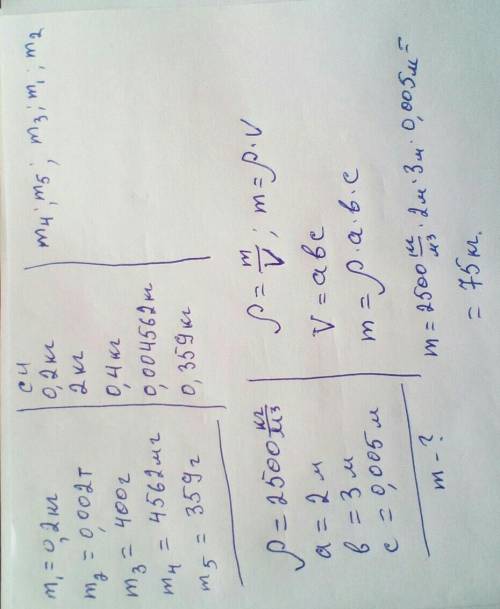 m₁ = 0,2кг
m₂ = 0,002т
m₃ = 400г
m₄ = 4562мг
m₅ = 359г
СИ
0,2кг
2кг
0,4кг
0,004562кг
0,359кг
m₄; m₅; m₃; m₁; m₂
ρ = 2500 кг/м³
a = 2 м
в = 3 м
c = 0,005 м
m - ?
ρ = m/V ; m = ρ·V
V = a в c
m = ρ·a·в·c
m = 2500 кг/м³ · 2м · 3м · 0,005м =
= 75 кг.